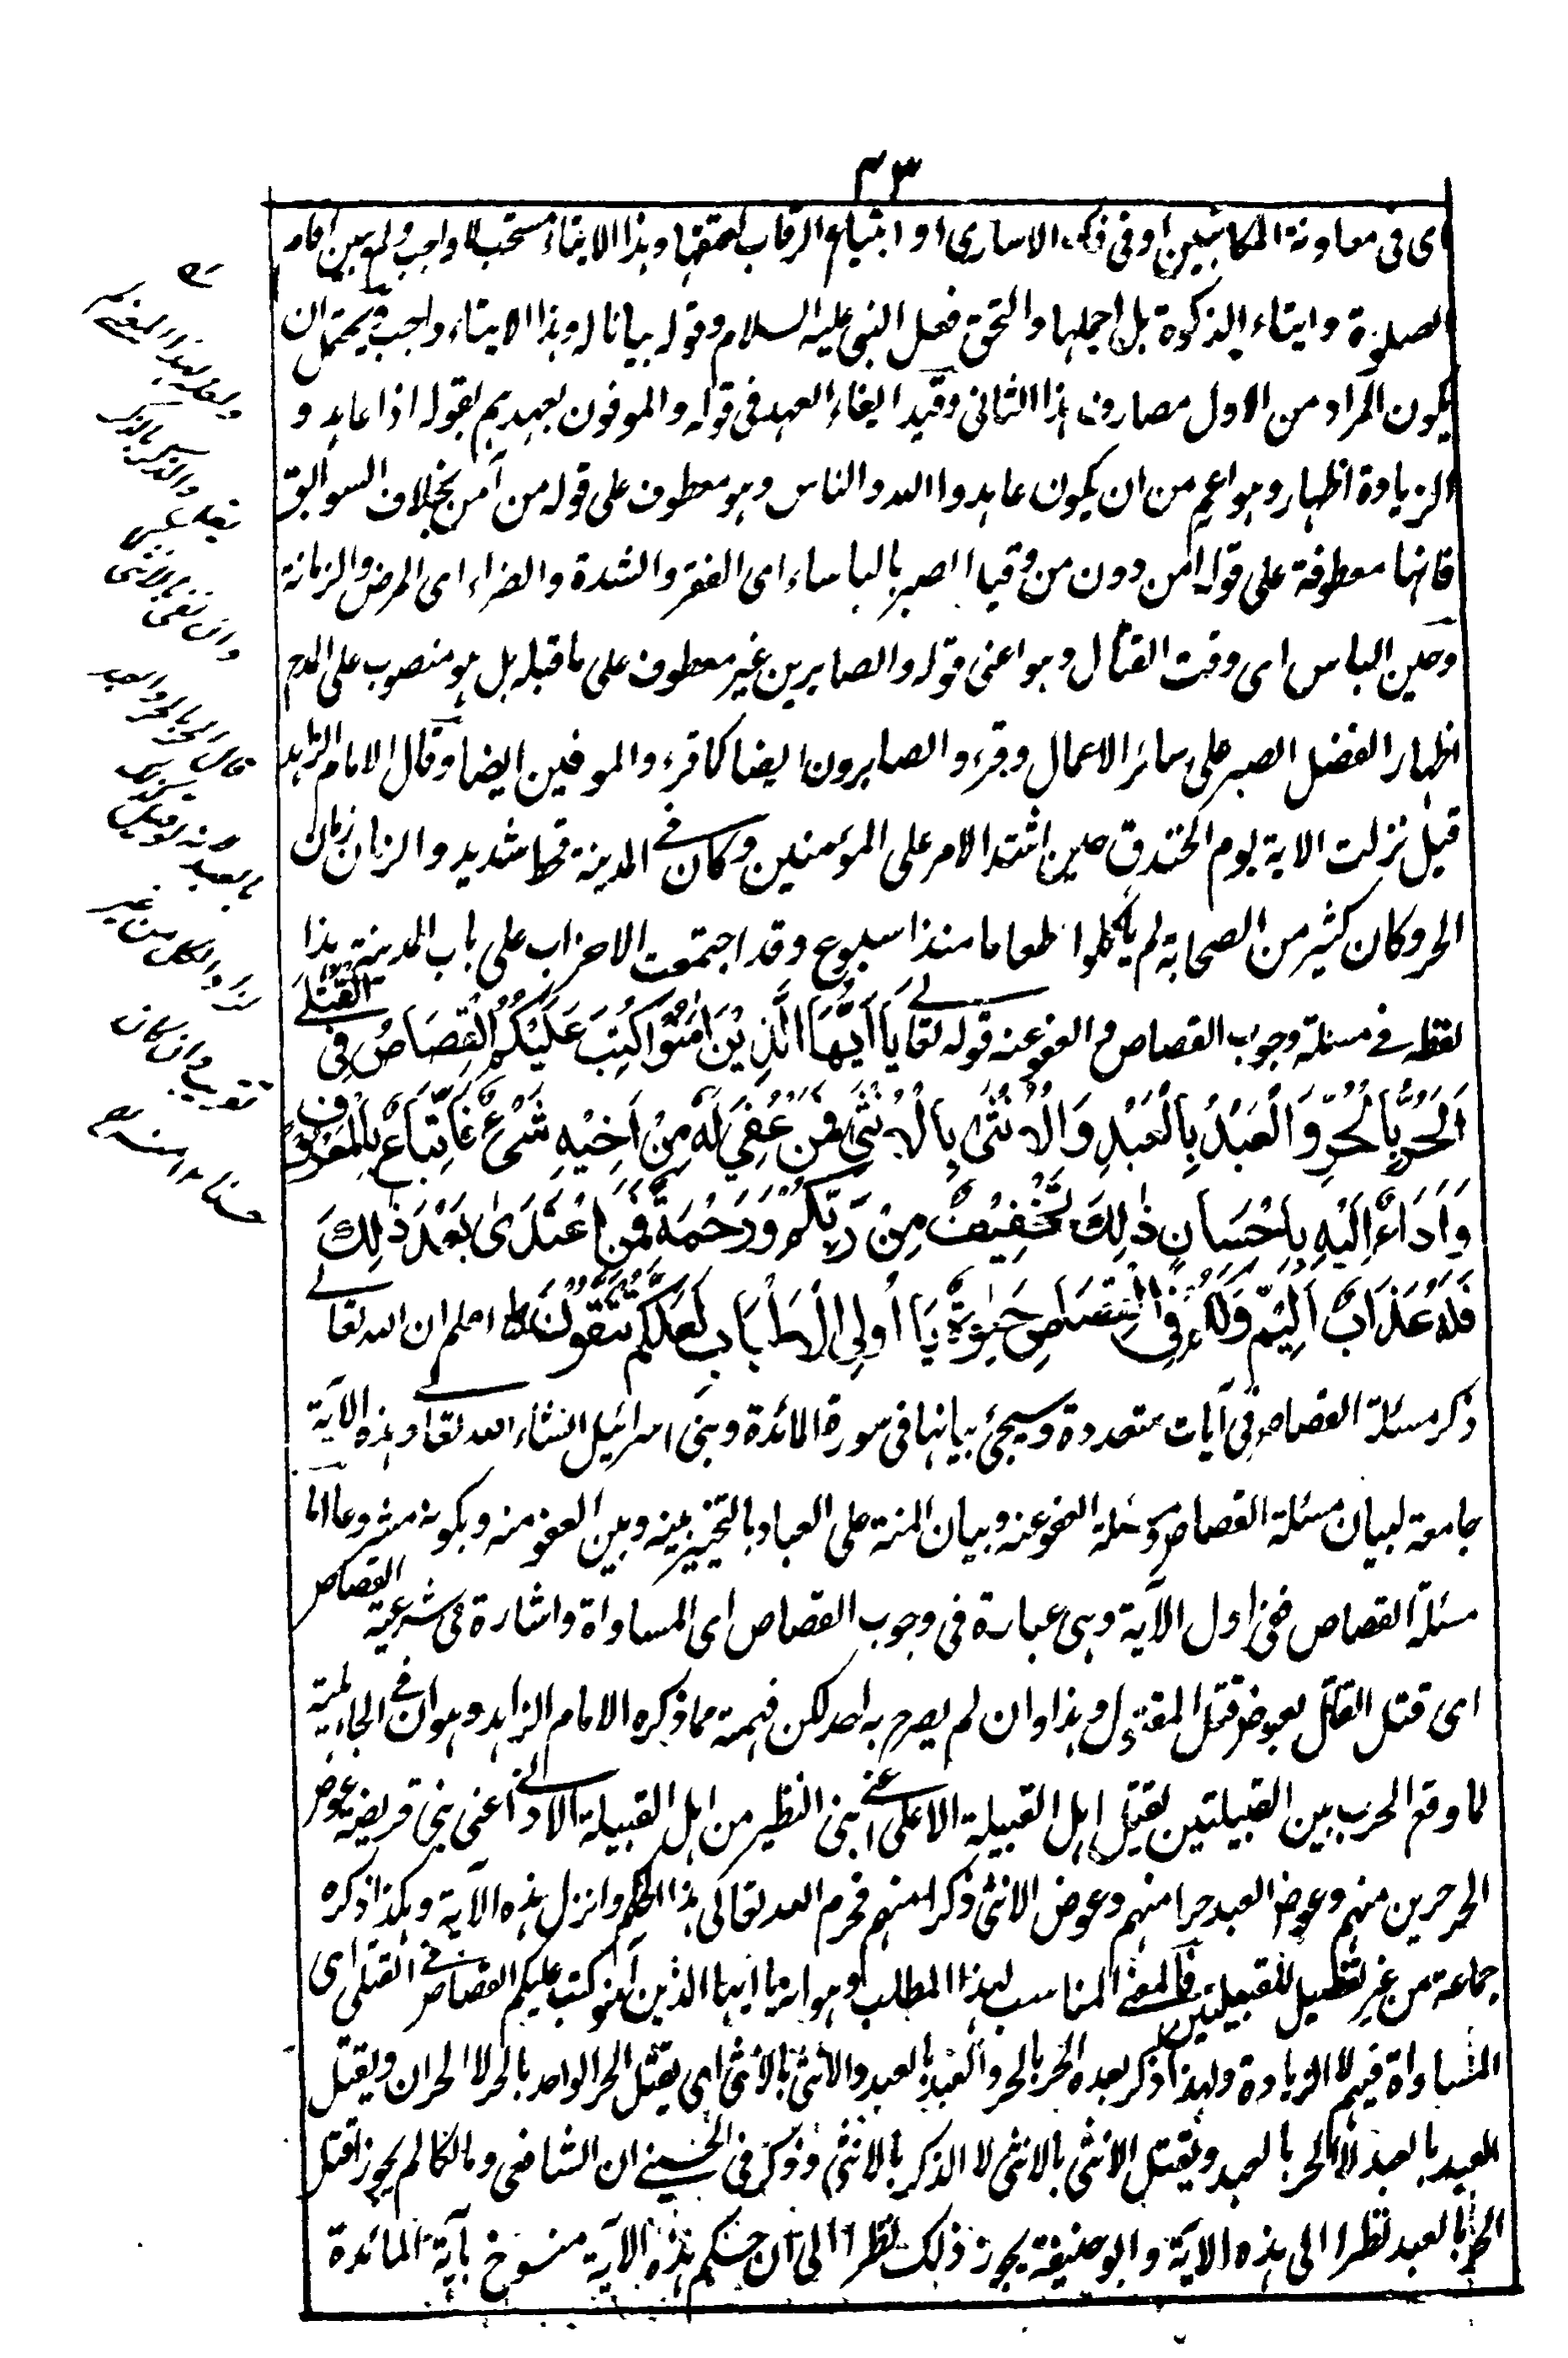 ٤٣
اى فى معاونة المكاتبين او فى فك الاسارى او ابتياع الرقاب لعتقها وهذا الايتاء مستحب لا واجب ولم يبين اقام
الصلوٰة وايتاء الزكوة بل اجملها والتحق فعل النبى عليه السلام وقوله بيانا له وهذا الايتاء واجب ويحتمل ان
يكون المراد من الاول مصارف هذا الثانى وقيد ايفاء العهد فى قوله والموفون بعهدهم بقوله اذا عاهدوا
لزيادة اظهار وهو اعم من ان يكون عاهدوا الله والناس وهو معطوف على قوله من آمن بخلاف السوابق
فانها معطوفة على قوله امن دون من وقيد الصبر بالباساء اى الفقر والشدة والضراء اى المرض والزمانة
وحين الباس اى وقت القتال وهو اعنى قوله والصابرين غير معطوف على ما قبله بل هو منصوب على المدح
اظهارا لفضل الصبر على سائر الاعمال وقرء والصابرون ايضا كما قرء والموفين ايضا وقال الامام الزاهد
قيل نزلت الاية يوم الخندق حين اشتد الامر على المؤمنين وكان فى المدينة قحط شديد والزمان زمان
الحر وكان كثير من الصحابة لم ياكلوا طعاما منذ اسبوع وقد اجتمعت الاحزاب على باب المدينة هذا
لفظه فى مسئلة وجوب القصاص والعفو عنه قوله تعالى يَا اَيُّهَا الَّذِيْنَ اٰمَنُوْا كُتِبَ عَلَيْكُمُ الْقِصَاصُ فِى الْقَتْلٰى
اَلْحُرُّ بِالْحُرِّ وَالْعَبْدُ بِالْعَبْدِ وَالْاُنْثٰى بِالْاُنْثٰى فَمَنْ عُفِيَ لَهٗ مِنْ اَخِيْهِ شَىْءٌ فَاتِّبَاعٌ بِالْمَعْرُوْفِ
وَاَدَاءٌ اِلَيْهِ بِاِحْسَانٍ ذٰلِكَ تَخْفِيْفٌ مِنْ رَّبِّكُمْ وَرَحْمَةٌ فَمَنِ اعْتَدٰى بَعْدَ ذٰلِكَ
فَلَهٗ عَذَابٌ اَلِيْمٌ وَلَكُمْ فِى الْقِصَاصِ حَيٰوةٌ يَا اُولِى الْاَلْبَابِ لَعَلَّكُمْ تَتَّقُوْنَ ط اعلم ان الله تعالى
ذكر مسئلة القصاص فى آيات متعددة وسيجئ بيانها فى سورة المائدة وبنى اسرائيل انشاء الله تعالى وهذه الآية
جامعة لبيان مسئلة القصاص ومسئلة العفو عنه وبيان المنة على العباد بالتخيير بينه وبين العفو منه وبكونه مشروعا اما
مسئلة القصاص ففى اول الآية وهى عبارة فى وجوب القصاص اى المساواة واشارة فى شرعية القصاص
اى قتل القاتل بعوض قتل المقتول وهذا وان لم يصرح به احد لكن فهمته مما ذكره الامام الزاهد وهو ان فى الجاهلية
لما وقع الحرب بين القبيلتين يقتل اهل القبيلة الاعلى اعنى بنى النظير من اهل القبيلة الادنى اعنى بنى قريضة عوض
الحر حرين منهم وعوض العبد حرا منهم وعوض الانثى ذكرا منهم فحرم الله تعالى هذا الحكم وانزل هذه الآية وهكذا ذكره
جماعة من غير تفصيل للقبيلتين فالمعنى المناسب لهذا المطلب وهو انه يا ايها الذين آمنو كتب عليكم القصاص فى القتلى اى
المساواة فيهم لا الزيادة ولهذا ذكر بعده الحر بالحر والعبد بالعبد والانثى بالانثى اى يقتل الحر الواحد بالحر لا الحران ويقتل
العبد بالعبد لا الحر بالعبد ويقتل الانثى بالانثى لا الذكر بالانثى وذكر فى الحسينى ان الشافعى ومالكا لم يجوز اقتل
الحر بالعبد نظرا الى هذه الآية وابو حنيفة يجوز ذلك نظرا الى ان حكم هذه الآية منسوخ بآية المائدة
يقتل
وان نفى
قال الحر بالحر والعبد
بالعبد
والكل من غير
وان كان
حسنا ١٢ منه